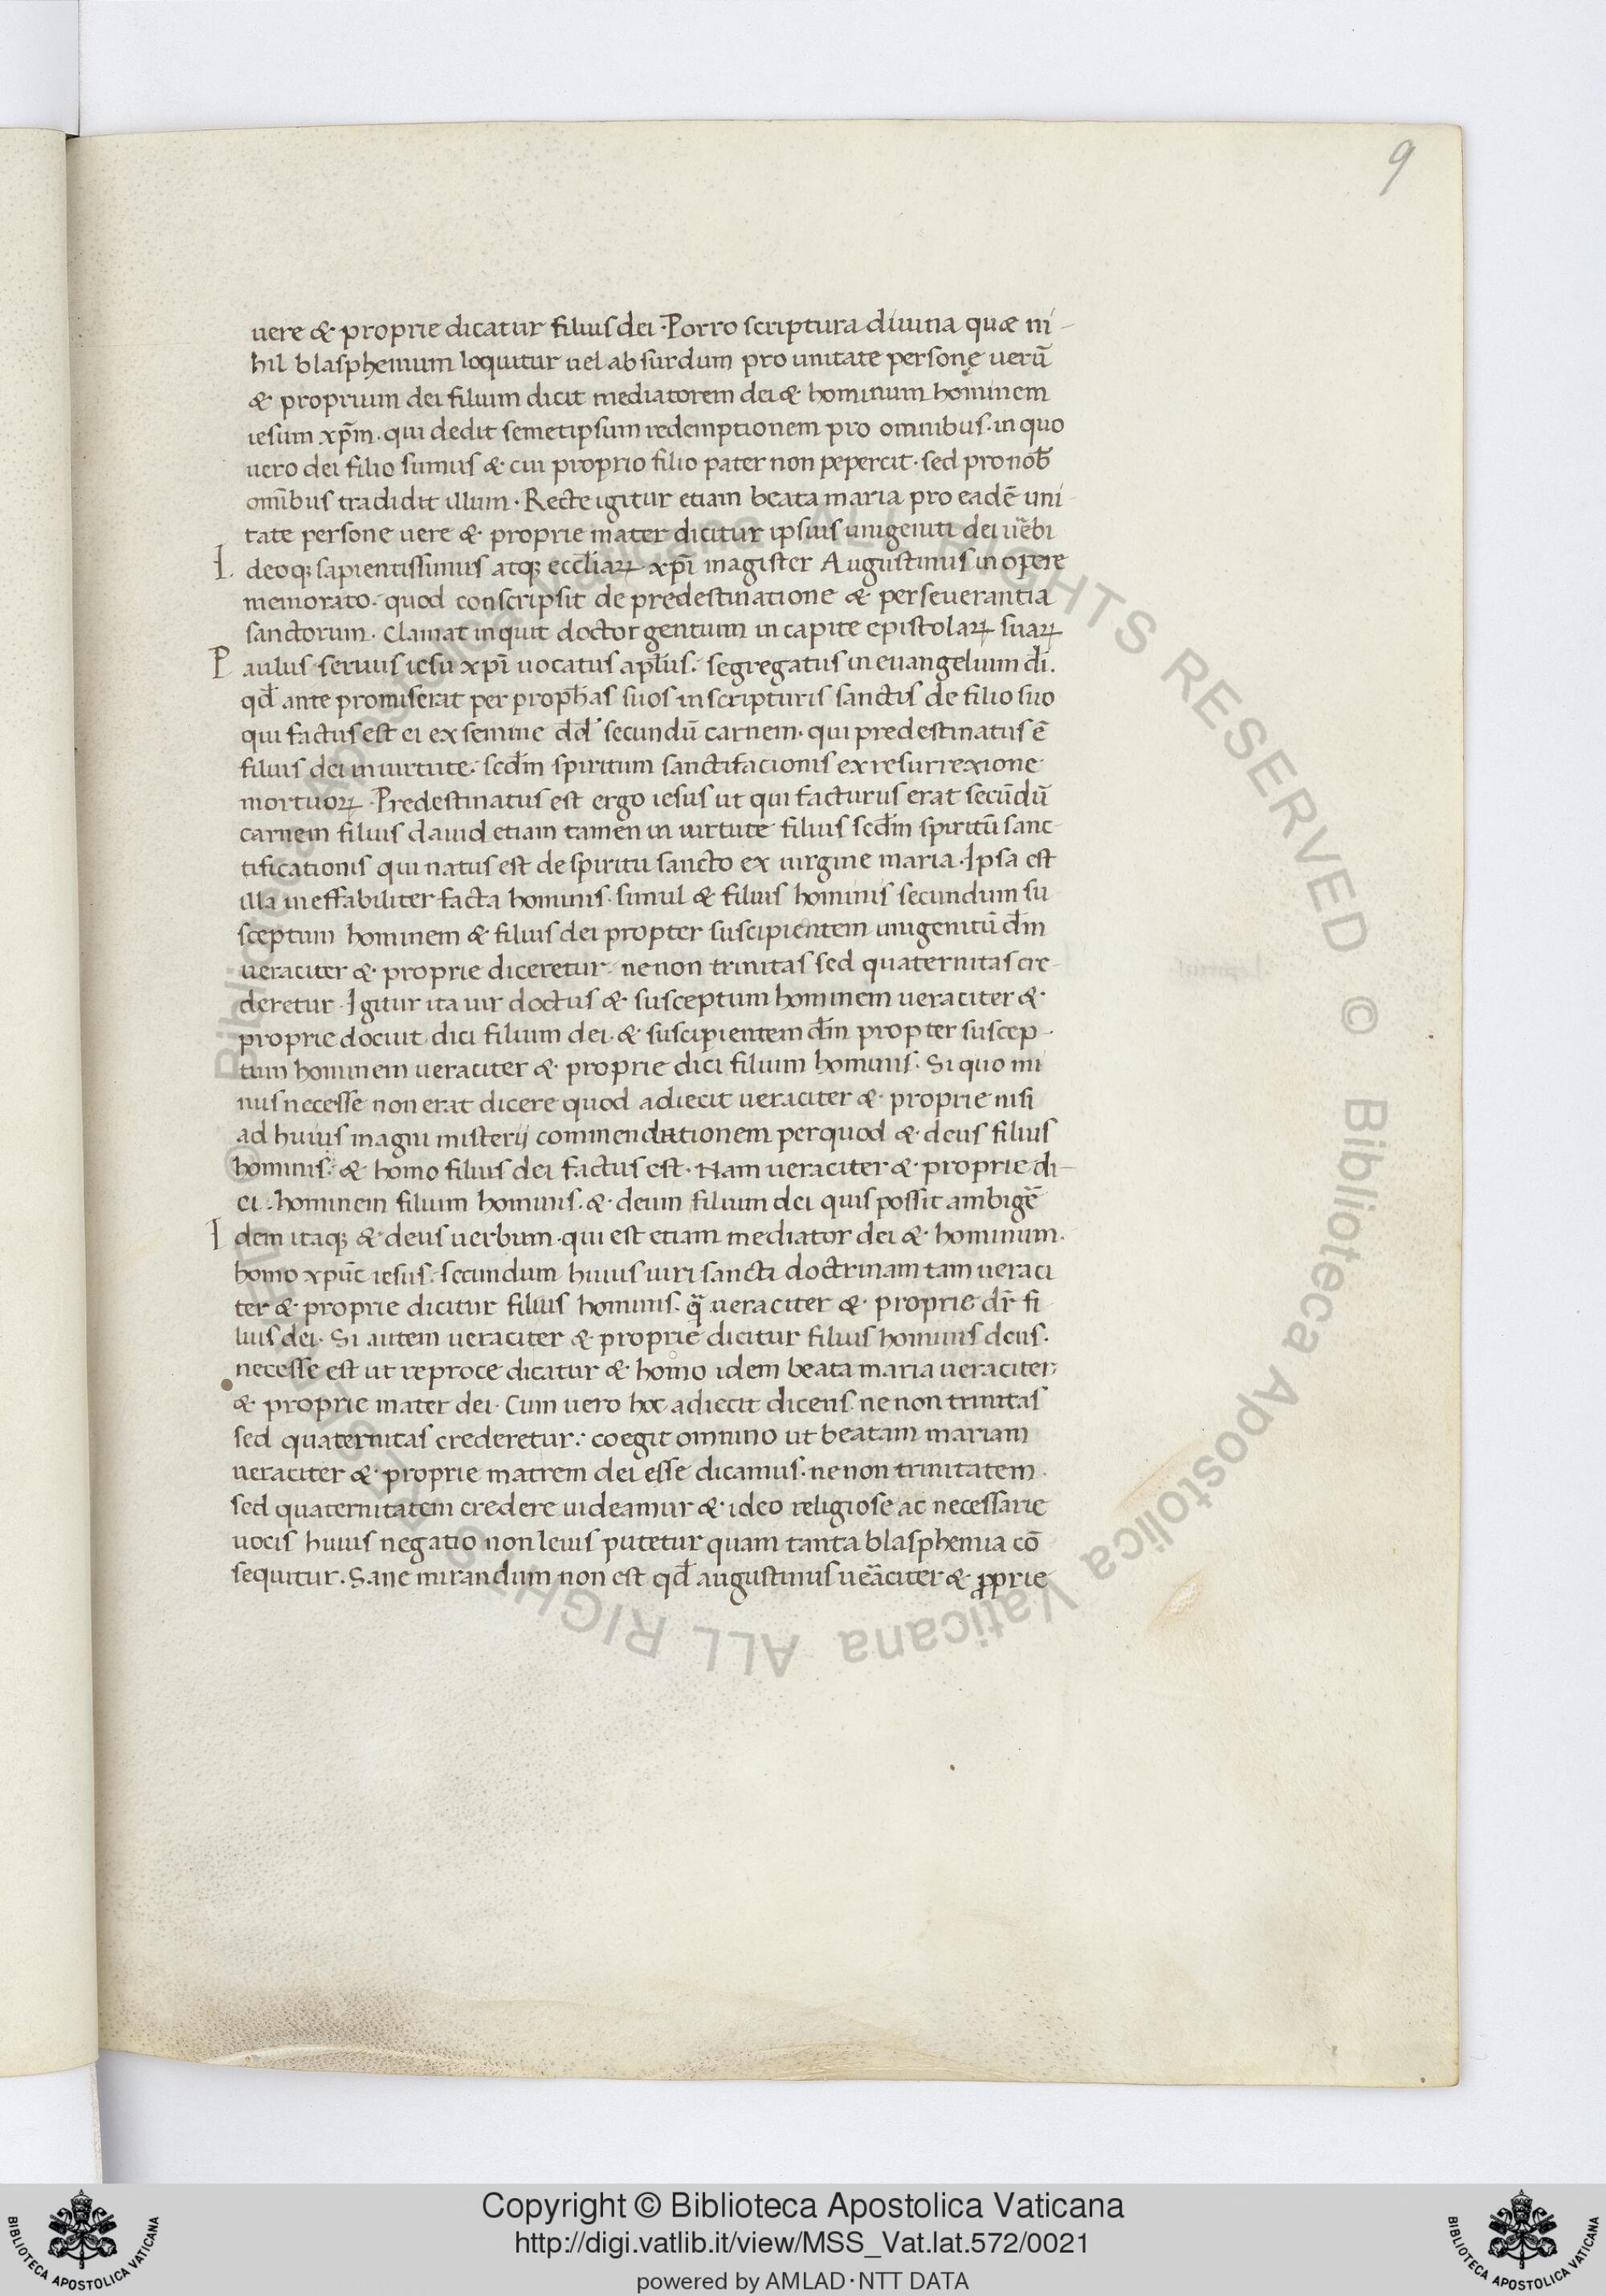 9
uere & proprie dicatur filius dei · Porro scriptura diuina quæ ni-
hil blasphemum loquitur uel absurdum pro unitate personę uerū
& proprium dei filium dicit mediatorem dei & hominum hominem
iesum xp̄m · qui dedit semetipsum redemptionem pro omnibus · in quo
uero dei filio sumus & cui proprio filio pater non pepercit · sed pro nob̄
omībus tradidit illum · Recte igitur etiam beata maria pro eadē uni
tate persone uere & proprie mater dicitur ipsius unigeniti dei uēbi
I. deoq; sapientissimus atq; eccl̄iaꝝ xp̄i magister Augustinus in opere
memorato · quod conscripsit de predestinatione & perseuerantia
sanctorum · Clamat inquit doctor gentium in capite epistolaꝝ suaꝝ
P aulus seruus iesu xp̄i uocatus apl̄us · segregatus in euangelium dī.
qd̄ ante promiserat per proph̄as suos in scripturis sanctis de filio suo
qui factus est ei ex semine dd̄ secundū carnem · qui predestinatus ē
filius dei in uirtute · scd̄m spiritum sanctifacionis ex resurrexione
mortuoꝝ · Predestinatus est ergo iesus ut qui facturus erat secūdū
carnem filius dauid etiam tamen in uirtute filius scd̄m spiritū sanc-
tificationis qui natus est de spiritu sancto ex uirgine maria · Ipsa est
illa ineffabiliter facta hominis · simul & filius hominis secundum su
sceptum hominem & filius dei propter suscipientem unigenitū dm̄
ueraciter & proprie diceretur · ne non trinitas sed quaternitas cre-
deretur · Igitur ita uir doctus & susceptum hominem ueraciter &
proprie docuit dici filium dei · & suscipientem dm̄ propter suscep-
tum hominem ueraciter & proprie dici filium hominis · Si quo mi
nus necesse non erat dicere quod adiecit ueraciter & proprie nisi
ad huius magni misterij commendationem per quod & deus filius
hominis · & homo filius dei factus est · Nam ueraciter & proprie di-
ci · hominem filium hominis · & deum filium dei quis possit ambigē
I dem itaq; & deus uerbum · qui est etiam mediator dei & hominum ·
homo xpūc iesus · secundum huius uiri sancti doctrinam tam ueraci
ter & proprie dicitur filius hominis · qā ueraciter & proprie dr̄ fi
lius dei · Si autem ueraciter & proprie dicitur filius hominis deus ·
necesse est ut reproce dicatur & homo idem beata maria ueraciter
& proprie mater dei · Cum uero hoc adiecit dicens · ne non trinitas
sed quaternitas crederetur : coegit omnino ut beatam mariam
ueraciter & proprie matrem dei esse dicamus · ne non trinitatem
sed quaternitatem credere uideamur & ideo religiose ac necessarie
uocis huius negatio non leuis putetur quam tanta blasphemia cō
sequitur · Sane mirandum non est qd̄ augustinus ueāciter & ꝓprie
© Biblioteca Apostolica Vaticana ALL RIGHTS RESERVED © Biblioteca Apostolica Vaticana ALL RIGHTS RESERVED
Copyright © Biblioteca Apostolica Vaticana
http://digi.vatlib.it/view/MSS_Vat.lat.572/0021
powered by AMLAD·NTT DATA
BIBLIOTECA APOSTOLICA VATICANA
BIBLIOTECA APOSTOLICA VATICANA